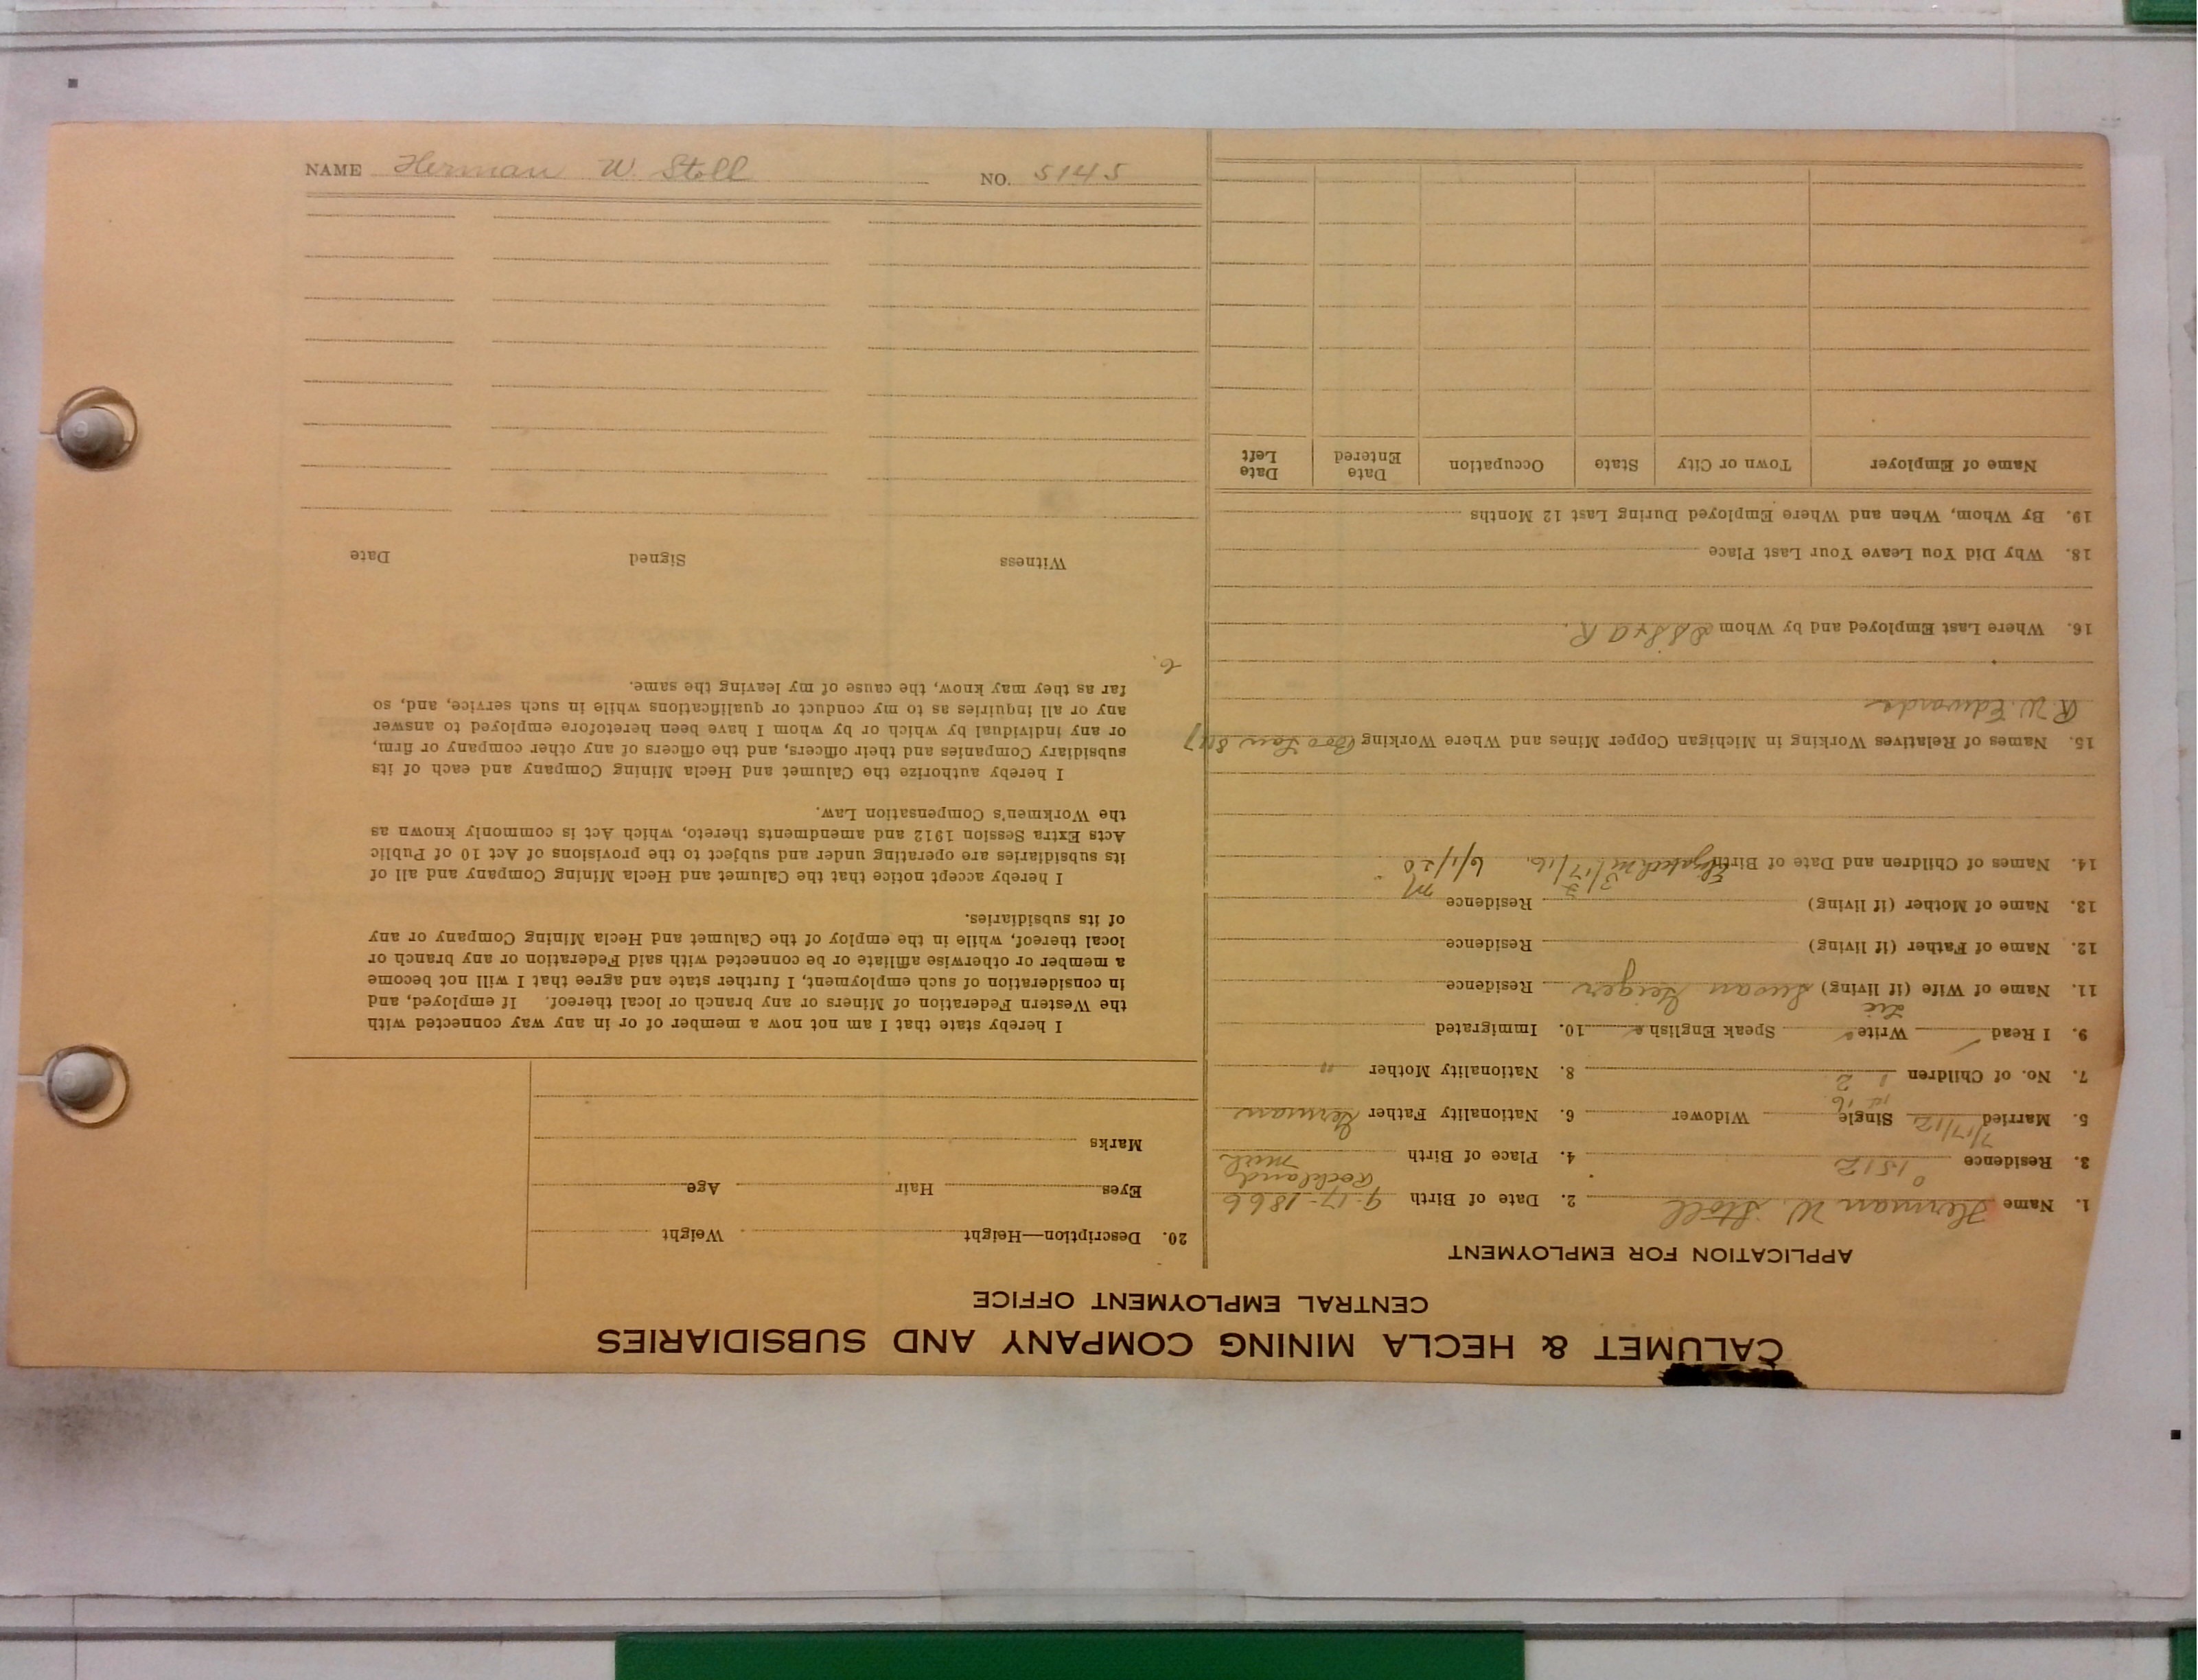 CALUMET & HECLA MINING COMPANY AND SUBSIDIARIES
CENTRAL EMPLOYMENT OFFICE
APPLICATION FOR EMPLOYMENT
1. Name Herman W. Stoll 2. Date of Birth 9-17-1866
3. Residence 01512 4. Place of Birth Rockland Mich
5. Married 7/17/12 Single Widower 6. Nationality Father German
7. No. of Children 1 2 8. Nationality Mother "
9. I Read Write Speak English 10. Immigrated
11. Name of Wife (if living) Susan Geiger Residence
12. Name of Father (if living) Residence
13. Name of Mother (if living) Residence
14. Names of Children and Date of Birth Elizabeth 3/17/16. 6/1/20
15. Names of Relatives Working in Michigan Copper Mines and Where Working Bro Law
R. W. Edwards
16. Where Last Employed and by Whom
18. Why Did You Leave Your Last Place
19. By Whom, When and Where Employed During Last 12 Months
Name of Employer Town or City State Occupation Date Entered Date Left
20. Description—Height Weight
Eyes Hair Age
Marks
I hereby state that I am not now a member of or in any way connected with
the Western Federation of Miners or any branch or local thereof. If employed, and
in consideration of such employment, I further state and agree that I will not become
a member or otherwise affiliate or be connected with said Federation or any branch or
local thereof, while in the employ of the Calumet and Hecla Mining Company or any
of its subsidiaries.
I hereby accept notice that the Calumet and Hecla Mining Company and all of
its subsidiaries are operating under and subject to the provisions of Act 10 of Public
Acts Extra Session 1912 and amendments thereto, which Act is commonly known as
the Workmen's Compensation Law.
I hereby authorize the Calumet and Hecla Mining Company and each of its
subsidiary Companies and their officers, and the officers of any other company or firm,
or any individual by which or by whom I have been heretofore employed to answer
any or all inquiries as to my conduct or qualifications while in such service, and, so
far as they may know, the cause of my leaving the same.
Witness Signed Date
NAME Herman W. Stoll NO. 5145